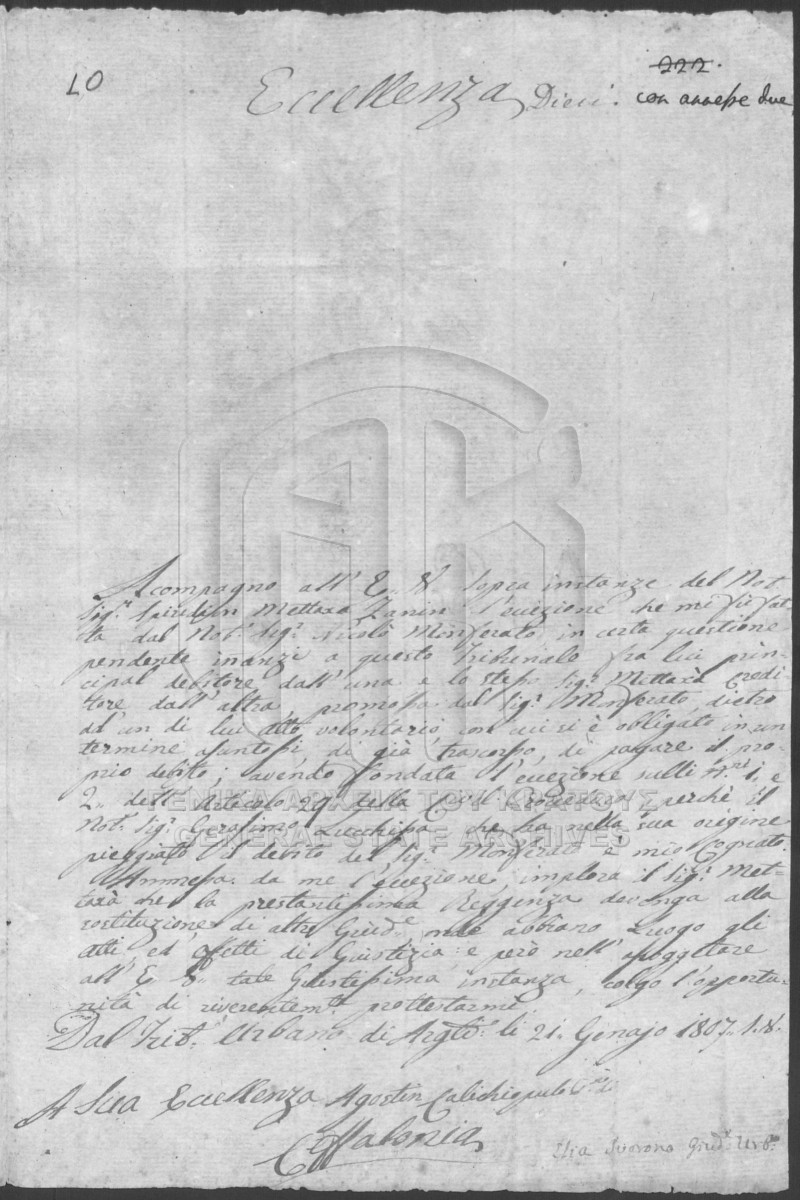 10
222.
Eccellenza Dieci. con annesse due
Acompagno all' E. V. sopra instanze del Not.
Sig.r Spiridion Mettarà Zanin l'ecezione che mi fù fat-
ta dal Nob. Sig.r Nicolò Monferato in certa questione
pendente inanzi a questo Tribunale fra lui prin-
cipal debitore dall' una e lo stesso Sig.r Mettarà Credi-
tore dall' altra, promossa dal Sig.r Monferato, dietro
ad un di lui atto volontario, con cui si è obligato in un
termine assuntosi, di già trascorso, di pagare il pro-
prio debito; avendo fondata l'ecezione sulli N.ri 1, e
2. dell' Articolo 29 della Civil Procedura, perchè il
Not. Sig.r Gerasimo che ha nella sua origine
pieggiato il debito del Sig.r Monferato è mio Cognato.
Ammessa da me l'ecezione, implora il Sig.r Met-
tarà che la prestantissima Reggenza devenga alla
sostituzione di altro Giud.e onde abbiano Luogo gli
atti, ed effetti di Giustizia: e però nell' assoggettare
all' E. V. tale Giustissima instanza, colgo l'opportu-
nità di riverentem.te prottestarmi
Dal Trib. Urbano di Argli. li 21. Genajo 1807. S.V.
A Sua Eccellenza Agostin
Ceffalonia
Elia Svorono Giud.e Urb.o
ΓΕΝΙΚΑ ΑΡΧΕΙΑ ΤΟΥ ΚΡΑΤΟΥΣ
GENERAL STATE ARCHIVES